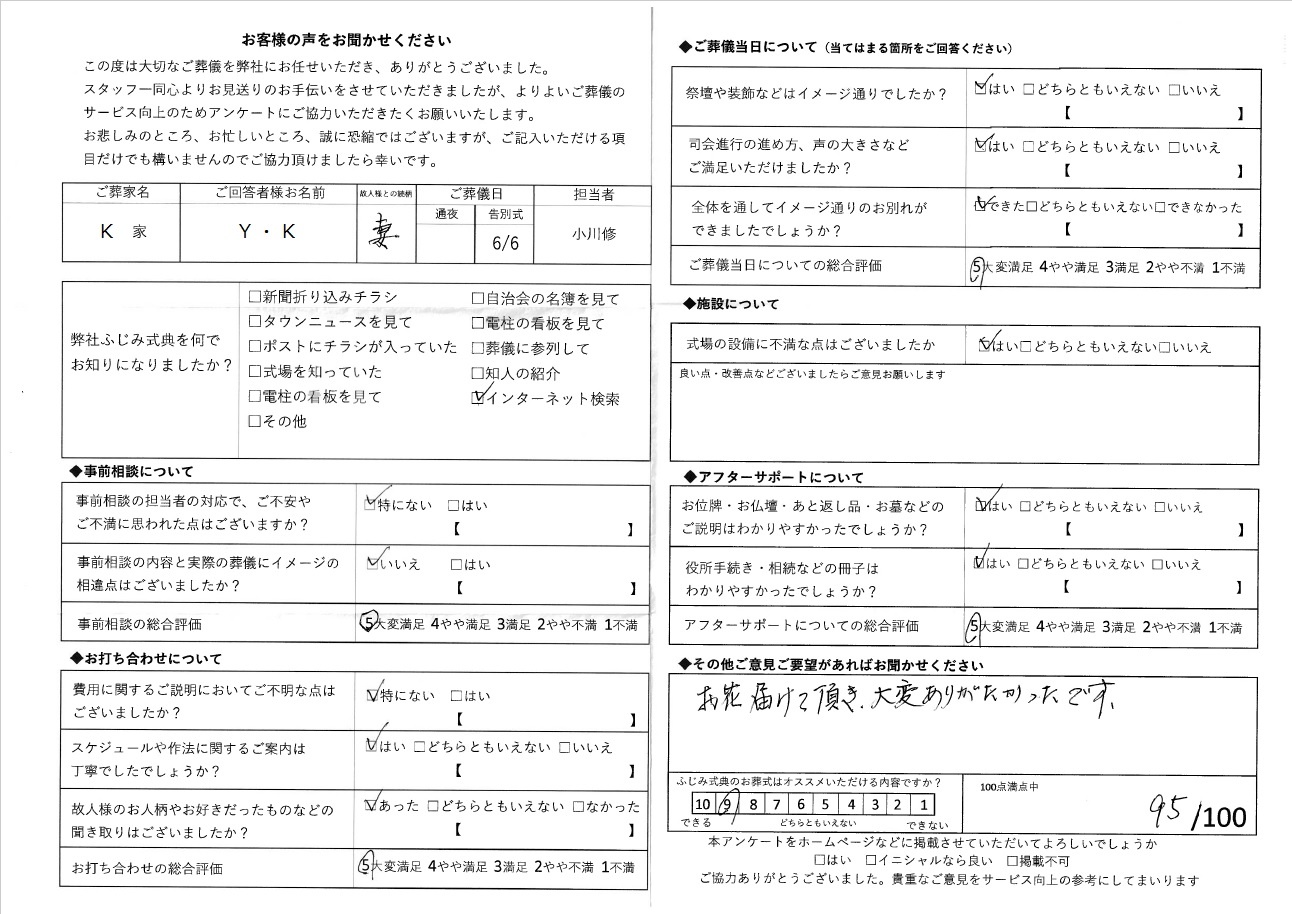 お客様の声をお聞かせください
この度は大切なご葬儀を弊社にお任せいただき、ありがとうございました。
スタッフ一同心よりお見送りのお手伝いをさせていただきましたが、よりよいご葬儀の
サービス向上のためアンケートにご協力いただきたくお願いいたします。
お悲しみのところ、お忙しいところ、誠に恐縮ではございますが、ご記入いただける項
目だけでも構いませんのでご協力頂けましたら幸いです。
ご葬家名 ご回答者様お名前 故人様との続柄 ご葬儀日 担当者
通夜 告別式
K 家 Y・K 妻 6/6 小川修
弊社ふじみ式典を何で
お知りになりましたか？
□新聞折り込みチラシ □自治会の名簿を見て
□タウンニュースを見て □電柱の看板を見て
□ポストにチラシが入っていた □葬儀に参列して
□式場を知っていた □知人の紹介
□電柱の看板を見て ☑インターネット検索
□その他
◆事前相談について
事前相談の担当者の対応で、ご不安や
ご不満に思われた点はございますか？
☑特にない □はい
【 】
事前相談の内容と実際の葬儀にイメージの
相違点はございましたか？
☑いいえ □はい
【 】
事前相談の総合評価 5大変満足 4やや満足 3満足 2やや不満 1不満
◆お打ち合わせについて
費用に関するご説明においてご不明な点は
ございましたか？
☑特にない □はい
【 】
スケジュールや作法に関するご案内は
丁寧でしたでしょうか？
☑はい □どちらともいえない □いいえ
【 】
故人様のお人柄やお好きだったものなどの
聞き取りはございましたか？
☑あった □どちらともいえない □なかった
【 】
お打ち合わせの総合評価 5大変満足 4やや満足 3満足 2やや不満 1不満
◆ご葬儀当日について（当てはまる箇所をご回答ください）
祭壇や装飾などはイメージ通りでしたか？
☑はい □どちらともいえない □いいえ
【 】
司会進行の進め方、声の大きさなど
ご満足いただけましたか？
☑はい □どちらともいえない □いいえ
【 】
全体を通してイメージ通りのお別れが
できましたでしょうか？
☑できた□どちらともいえない□できなかった
【 】
ご葬儀当日についての総合評価 5大変満足 4やや満足 3満足 2やや不満 1不満
◆施設について
式場の設備に不満な点はございましたか ☑はい□どちらともいえない□いいえ
良い点・改善点などございましたらご意見お願いします
◆アフターサポートについて
お位牌・お仏壇・あと返し品・お墓などの
ご説明はわかりやすかったでしょうか？
☑はい □どちらともいえない □いいえ
【 】
役所手続き・相続などの冊子は
わかりやすかったでしょうか？
☑はい □どちらともいえない □いいえ
【 】
アフターサポートについての総合評価 5大変満足 4やや満足 3満足 2やや不満 1不満
◆その他ご意見ご要望があればお聞かせください
お花届けて頂き、大変ありがたかったです、
ふじみ式典のお葬式はオススメいただける内容ですか？
10 9 8 7 6 5 4 3 2 1
できる どちらともいえない できない
100点満点中
95/100
本アンケートをホームページなどに掲載させていただいてよろしいでしょうか
□はい □イニシャルなら良い □掲載不可
ご協力ありがとうございました。貴重なご意見をサービス向上の参考にしてまいります